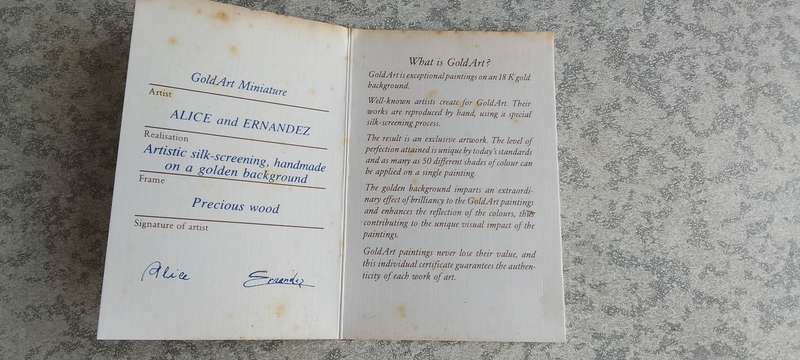 GoldArt Miniature
Artist
ALICE and ERNANDEZ
Realisation
Artistic silk-screening, handmade
on a golden background
Frame
Precious wood
Signature of artist
Alice Ernandez
What is GoldArt?
GoldArt is exceptional paintings on an 18 K gold
background.
Well-known artists create for GoldArt. Their
works are reproduced by hand, using a special
silk-screening process.
The result is an exclusive artwork. The level of
perfection attained is unique by today's standards
and as many as 50 different shades of colour can
be applied on a single painting.
The golden background imparts an extraordi-
nary effect of brilliancy to the GoldArt paintings
and enhances the reflection of the colours, thus
contributing to the unique visual impact of the
paintings.
GoldArt paintings never lose their value, and
this individual certificate guarantees the authen-
ticity of each work of art.